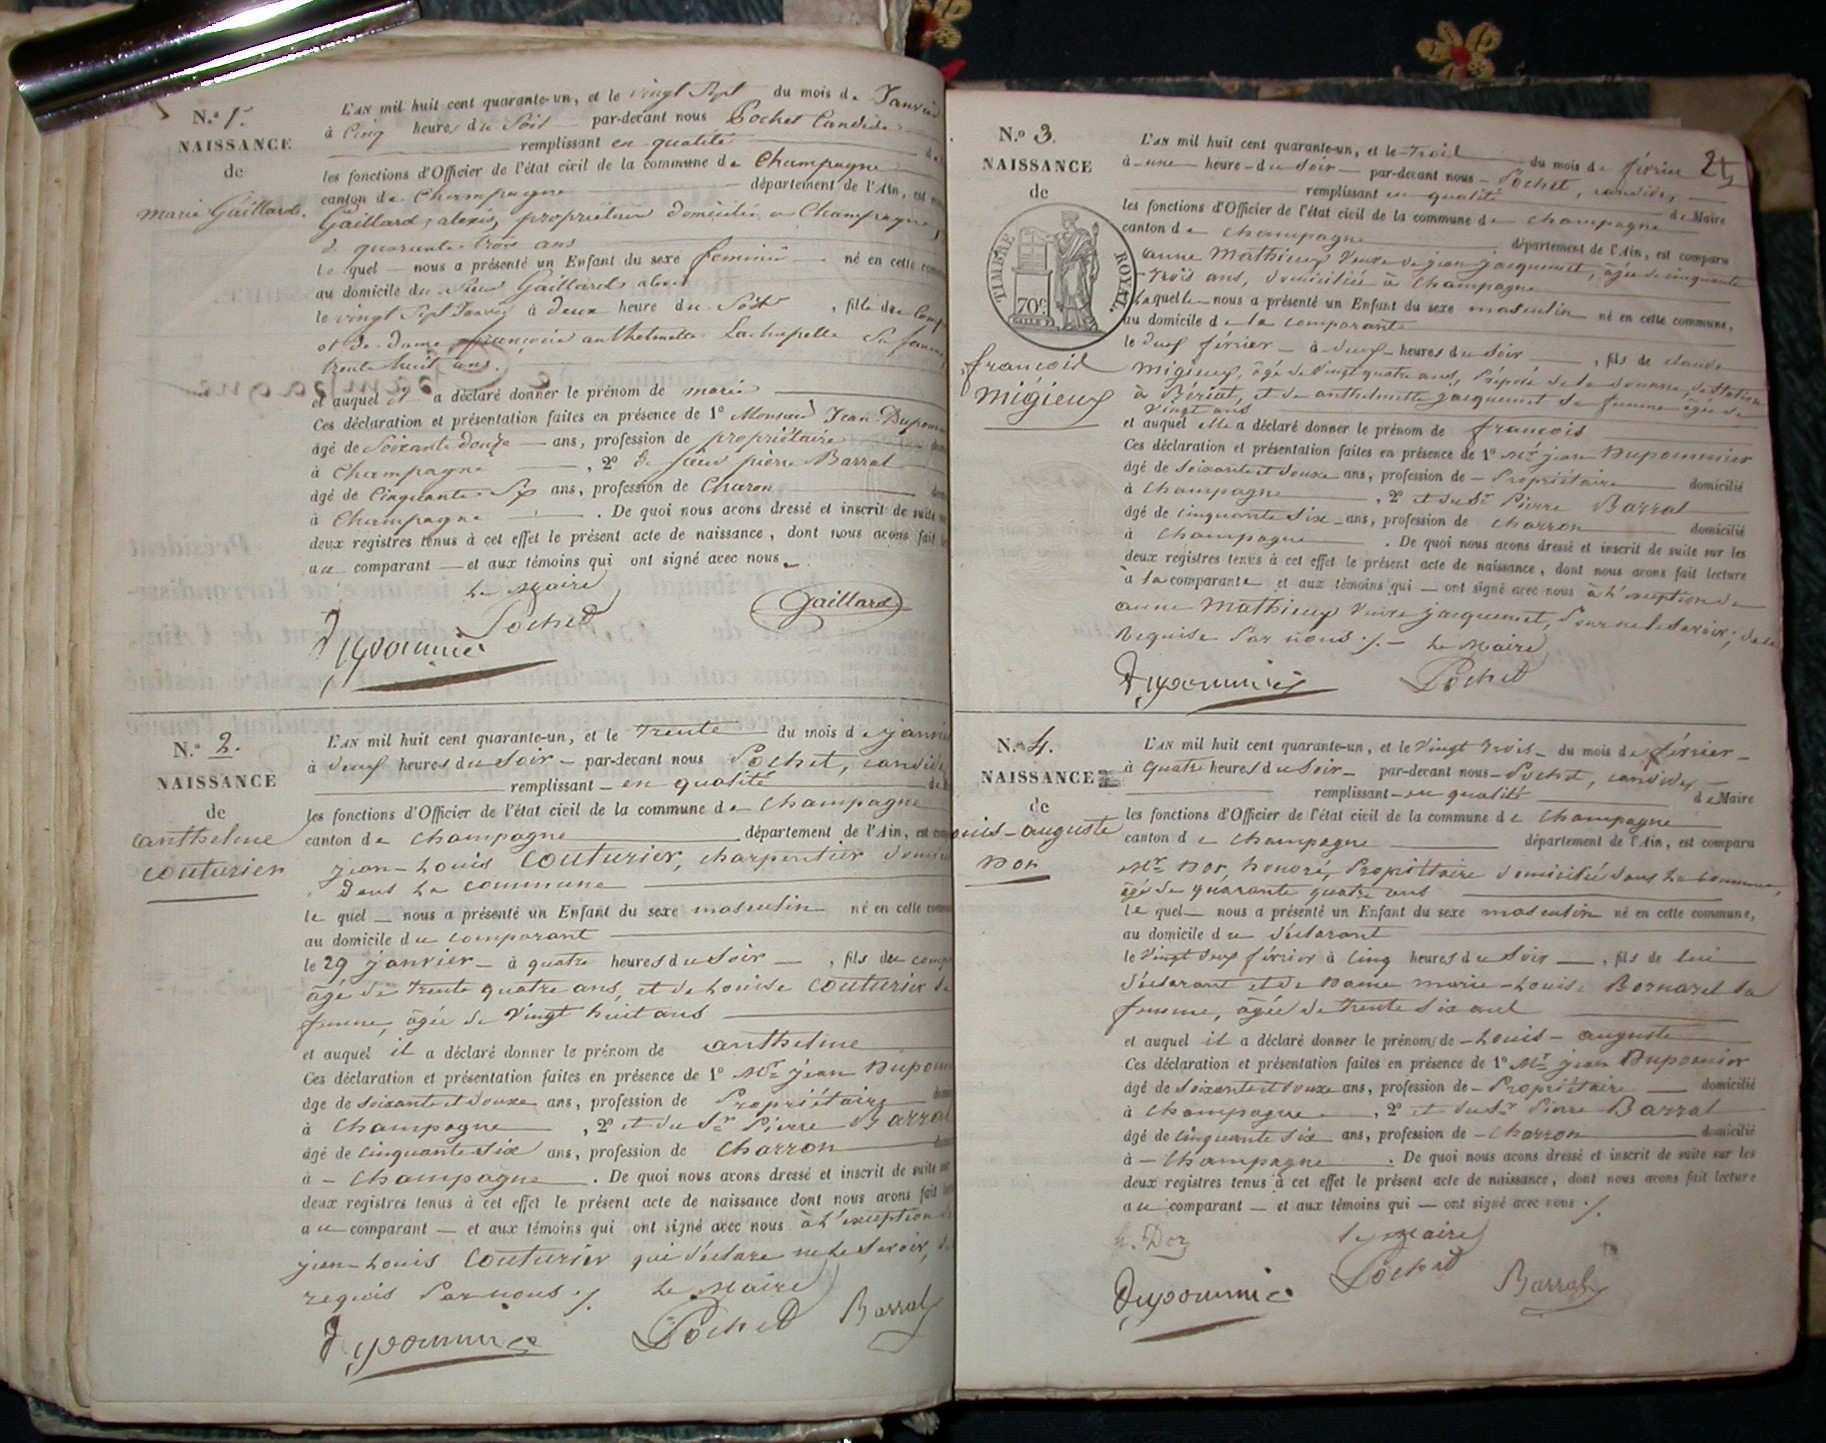 N.o 1.er
NAISSANCE
de
Marie Gaillard.
L'AN mil huit cent quarante-un, et le vingt Sept du mois de Janvier
à Cinq heures du Soir par-devant nous Pochet Candide
remplissant en qualité de
les fonctions d'Officier de l'état civil de la commune de Champagne
canton de Champagne département de l'Ain, est
Gaillard, alexis, propriétaire domicilié a Champagne,
quarante trois ans
le quel nous a présenté un Enfant du sexe feminin né en cette
au domicile du Sieur Gaillard alexis
le vingt Sept Janvier à Deux heure du Soir, fille du Comp
et de dame anthelmette Lachapelle Sa femme
trente huit ans.
et auquel il a déclaré donner le prénom de marie
Ces déclaration et présentation faites en présence de 1o Monsieur Jean Dupom
âgé de Soixante douze ans, profession de propriétaire
à Champagne, 2o de sieur pierre Barral
âgé de Cinquante Six ans, profession de Charon
à Champagne. De quoi nous avons dressé et inscrit de suite
deux registres tenus à cet effet le présent acte de naissance, dont nous avons fait
au comparant et aux témoins qui ont signé avec nous.
Le Maire
Pochet
Gaillard
Dupommier
N.o 2.
NAISSANCE
de
anthelme
couturier
L'AN mil huit cent quarante-un, et le trente du mois de janvie
à deux heures du Soir par-devant nous Pochet, candide
remplissant en qualité de
les fonctions d'Officier de l'état civil de la commune de Champagne
canton de Champagne département de l'Ain, est
jean-Louis Couturier, charpentier
Dans La Commune
le quel nous a présenté un Enfant du sexe masculin né en cette
au domicile du comparant
le 29 janvier à quatre heures du Soir, fils du comp
âgé de trente quatre ans, et de Louise Couturier Sa
femme, âgée de Vingt huit ans
et auquel il a déclaré donner le prénom de anthelme
Ces déclaration et présentation faites en présence de 1o Mr jean Dupom
âgé de soixante et douze ans, profession de Propriétaire
à Champagne, 2o et du Sr Pierre Barral
âgé de cinquante six ans, profession de Charron
à Champagne. De quoi nous avons dressé et inscrit de suite
deux registres tenus à cet effet le présent acte de naissance dont nous avons fait
au comparant et aux témoins qui ont signé avec nous à l'exception de
jean-Louis Couturier qui déclare ne Le Savoir, de
requis Par nous ./.
Le Maire
Dupommier Pochet Barral
24
N.o 3.
NAISSANCE
de
TIMBRE ROYAL.
70c
françois
Migieux
L'AN mil huit cent quarante-un, et le trois du mois de février
à une heure du Soir par-devant nous Pochet, candide,
remplissant en qualité de Maire
les fonctions d'Officier de l'état civil de la commune de Champagne
canton de Champagne département de l'Ain, est comparu
anne Mathieux Veuve de jean jacquemet, âgée de cinquante
trois ans, domiciliée à Champagne
Laquelle nous a présenté un Enfant du sexe masculin né en cette commune,
au domicile de la comparante
le deux février à deux heures du soir, fils de claude
Migieux, âgé de Vingt quatre ans, Préposé de la douane, de Station
à Bériat, et de anthelmette jacquemet Sa femme âgée de
Vingt ans
et auquel elle a déclaré donner le prénom de françois
Ces déclaration et présentation faites en présence de 1o Mr jean Dupommier
âgé de soixante et douze ans, profession de Propriétaire domicilié
à Champagne, 2o et du Sr Pierre Barral
âgé de cinquante six ans, profession de Charron domicilié
à Champagne. De quoi nous avons dressé et inscrit de suite sur les
deux registres tenus à cet effet le présent acte de naissance, dont nous avons fait lecture
à la comparante et aux témoins qui ont signé avec nous à l'exception de
anne Mathieux Veuve jacquemet, Pour ne le savoir, de ce
Requise Par nous ./. Le Maire
Dupommier Pochet
N.o 4.
NAISSANCE
de
ouis-auguste
Dor
L'AN mil huit cent quarante-un, et le Vingt trois du mois de février
à quatre heures du Soir par-devant nous Pochet, candide,
remplissant en qualité de Maire
les fonctions d'Officier de l'état civil de la commune de Champagne
canton de Champagne département de l'Ain, est comparu
Mr Dor, honoré, Propriétaire domicilié dans La Commune,
âgé de quarante quatre ans
le quel nous a présenté un Enfant du sexe masculin né en cette commune,
au domicile du déclarant
le Vingt deux février à cinq heures du Soir, fils de lui
déclarant et de Dame marie-Louise Bornarel Sa
femme, âgée de trente six ans
et auquel il a déclaré donner le prénom de Louis-auguste
Ces déclaration et présentation faites en présence de 1o Mr jean Dupommier
âgé de soixante et douze ans, profession de Propriétaire domicilié
à Champagne, 2o et du Sr Pierre Barral
âgé de cinquante six ans, profession de Charron domicilié
à Champagne. De quoi nous avons dressé et inscrit de suite sur les
deux registres tenus à cet effet le présent acte de naissance, dont nous avons fait lecture
au comparant et aux témoins qui ont signé avec nous ./.
h. Dor Le Maire
Dupommier Pochet Barral